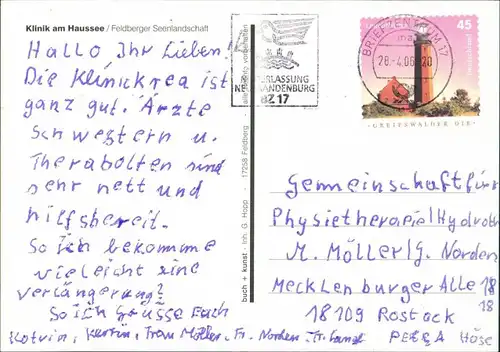 Klinik am Haussee / Feldberger Seenlandschaft
Hallo Ihr Lieben!
Die Klinickrea ist
ganz gut. Ärzte
Schwestern u.
Therabolten sind
sehr nett und
hilfsbereit.
So ich bekomme
vieleicht eine
verlängerung?
So ich Grüsse Euch
Katrin, Kerstin, Frau Möller, Fr. Norden
PETRA Höse
buch + kunst · Inh. G. Hopp · 17258 Feldberg
alle Rechte vorbehalten
NIEDERLASSUNG
NEUBRANDENBURG
BZ 17
BRIEFZENTRUM 17
28.-4.06-20
45
Deutschland
GREIFSWALDER OIE
Gemeinschaft für
Physietherapie/Hydroth
M. Möller/G. Norden
Mecklenburger Alle 18
18
18109 Rostock